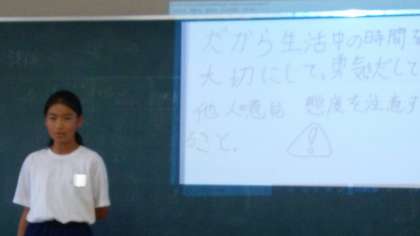 だから生活中の時間を
大切にして、勇気だして
他人 態度を注意す
こと。